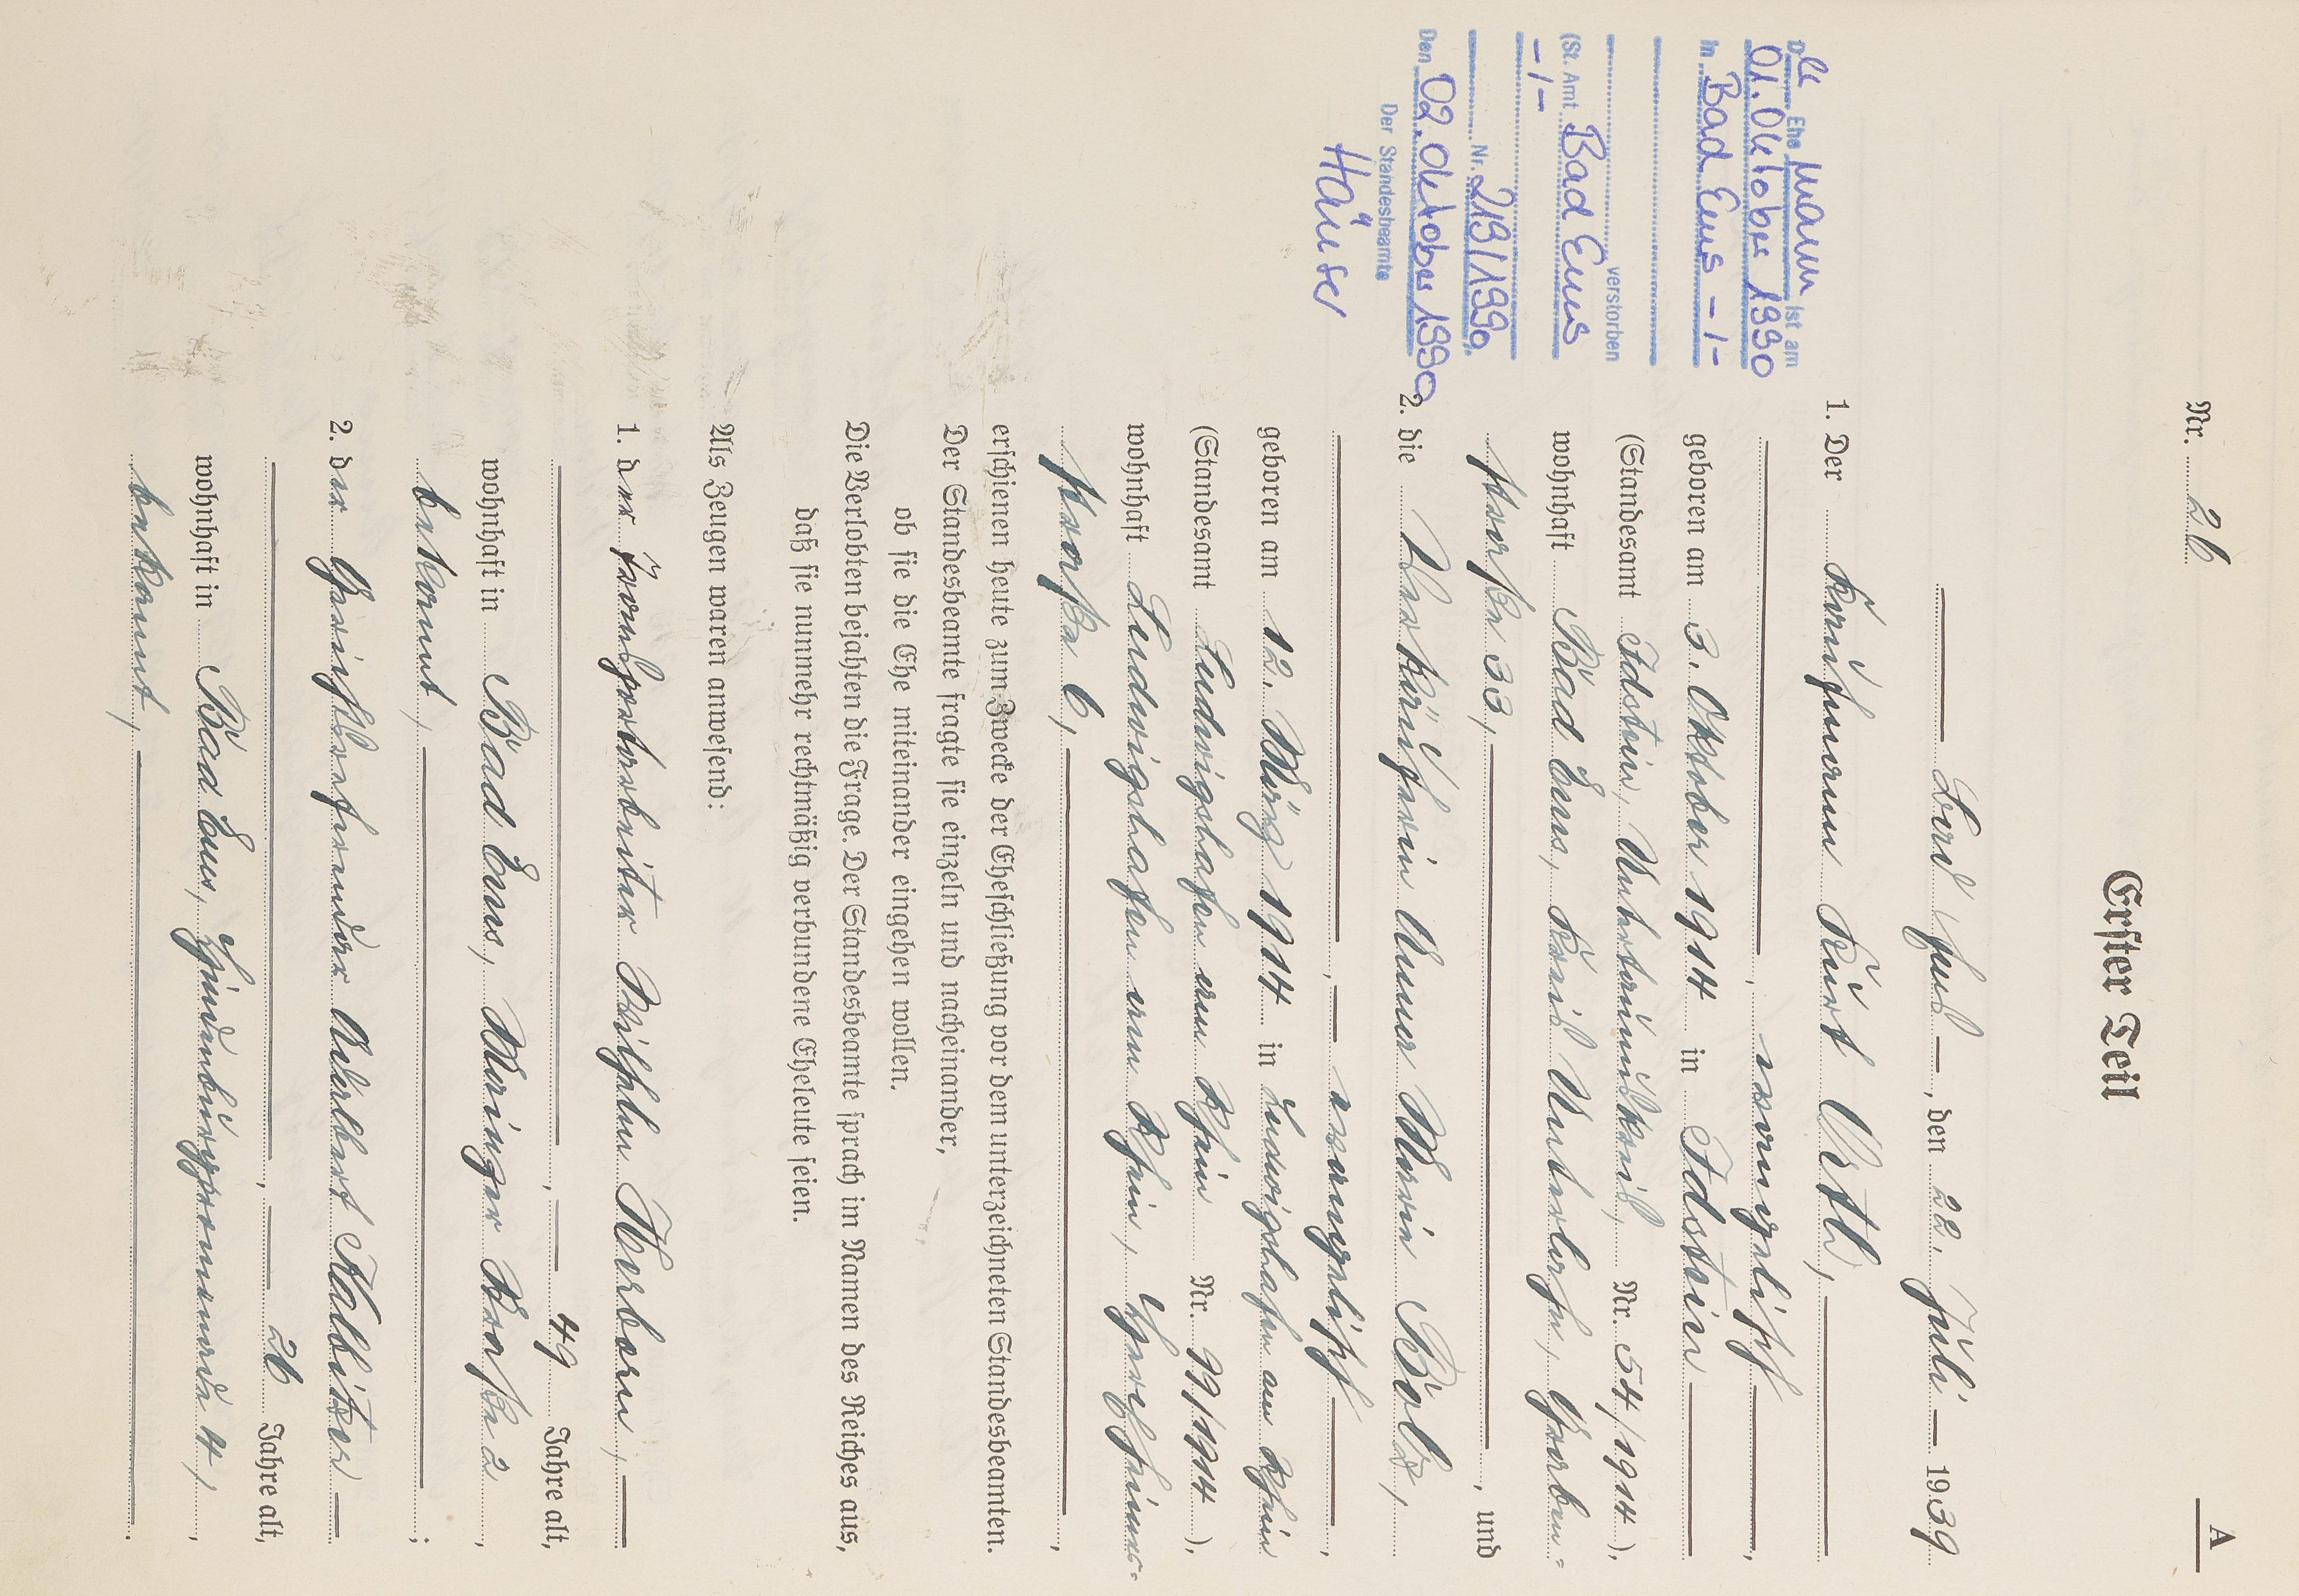 A
Nr. 26
Erster Teil
Bad Ems, den 22. Juli 1939
1. Der Kaufmann Kurt Urth,
, evangelisch,
geboren am 3. Oktober 1914 in Idstein
(Standesamt Idstein, Untertaunuskreis, Nr. 54/1914),
wohnhaft Bad Ems,
straße 33, und
2. die Verkäuferin Anna Maria Bolz,
, evangelisch,
geboren am 12. März 1914 in Ludwigshafen am Rhein
(Standesamt Ludwigshafen am Rhein Nr. 99/1914),
wohnhaft Ludwigshafen am Rhein,
straße 6,
erschienen heute zum Zwecke der Eheschließung vor dem unterzeichneten Standesbeamten.
Der Standesbeamte fragte sie einzeln und nacheinander,
ob sie die Ehe miteinander eingehen wollen.
Die Verlobten bejahten die Frage. Der Standesbeamte sprach im Namen des Reiches aus,
daß sie nunmehr rechtmäßig verbundene Eheleute seien.
Als Zeugen waren anwesend:
1. der Wilhelm
, 49 Jahre alt,
wohnhaft in Bad Ems, Mainzer Straße 2
bekannt,;
2. der Gerichtsreferendar Adalbert Kalbitzer
, 26 Jahre alt,
wohnhaft in Bad Ems, Hindenburgpromenade 4,,
bekannt,.
Die Ehemann ist am
01. Oktober 1990
in Bad Ems -/-
verstorben
(St. Amt Bad Ems
-/-
Nr. 219/1990
Den 02. Oktober 1990
Der Standesbeamte
Häuser